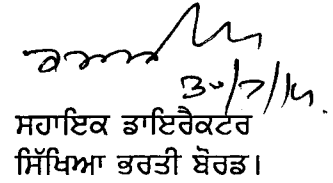 30/7/14.
ਸਹਾਇਕ ਡਾਇਰੈਕਟਰ
ਸਿੱਖਿਆ ਭਰਤੀ ਬੋਰਡ।